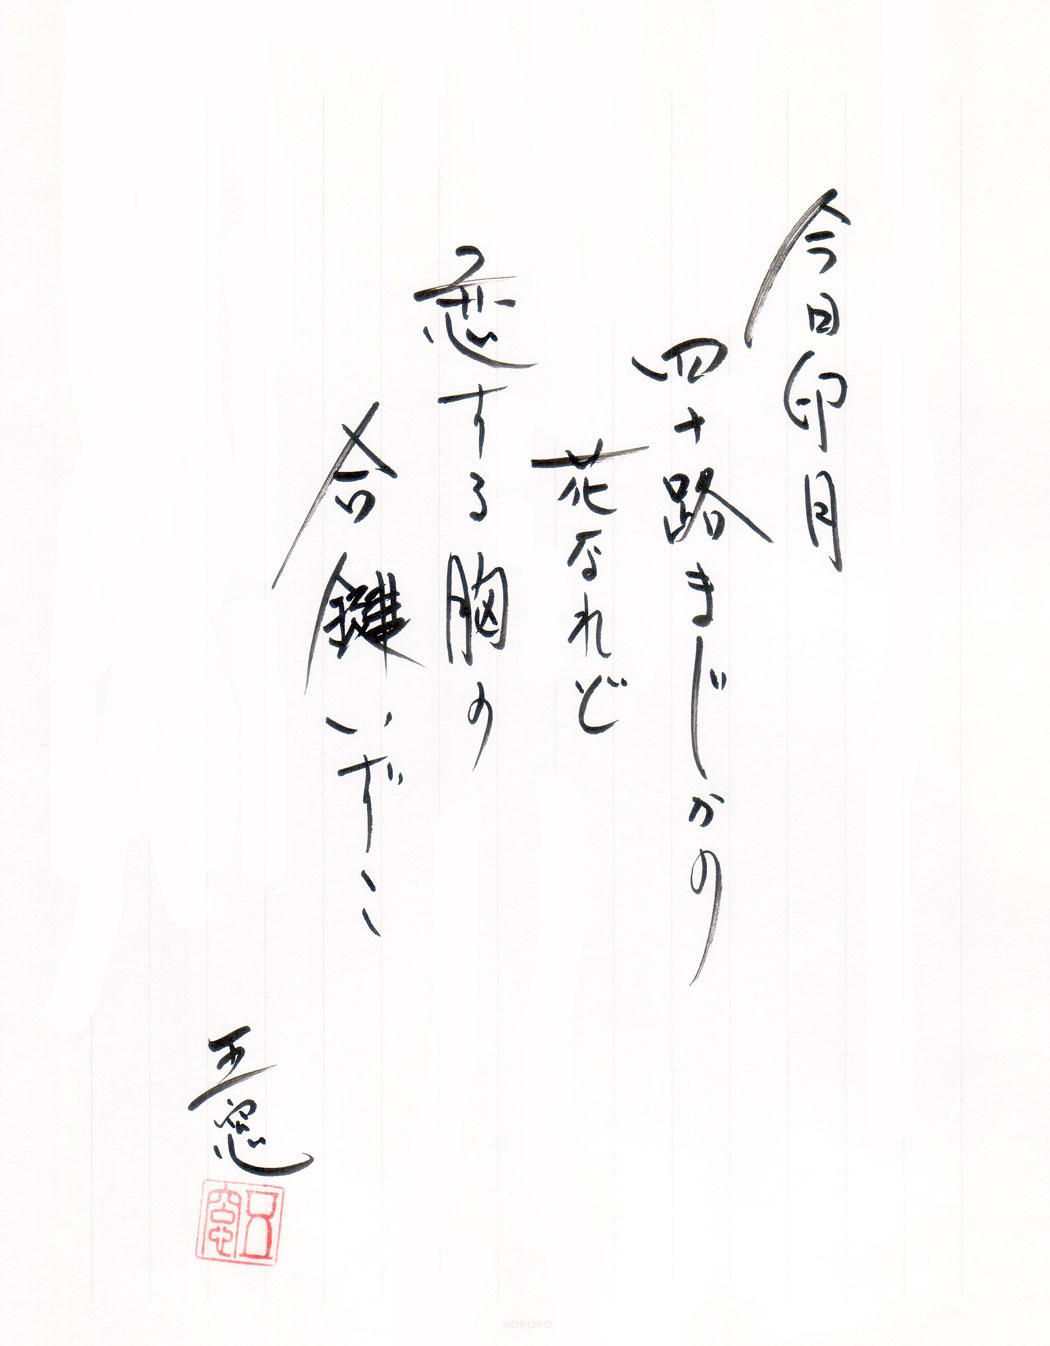 今日卯月
四十路まじかの
花なれど
恋する胸の
合鍵いずこ
KOKUYO